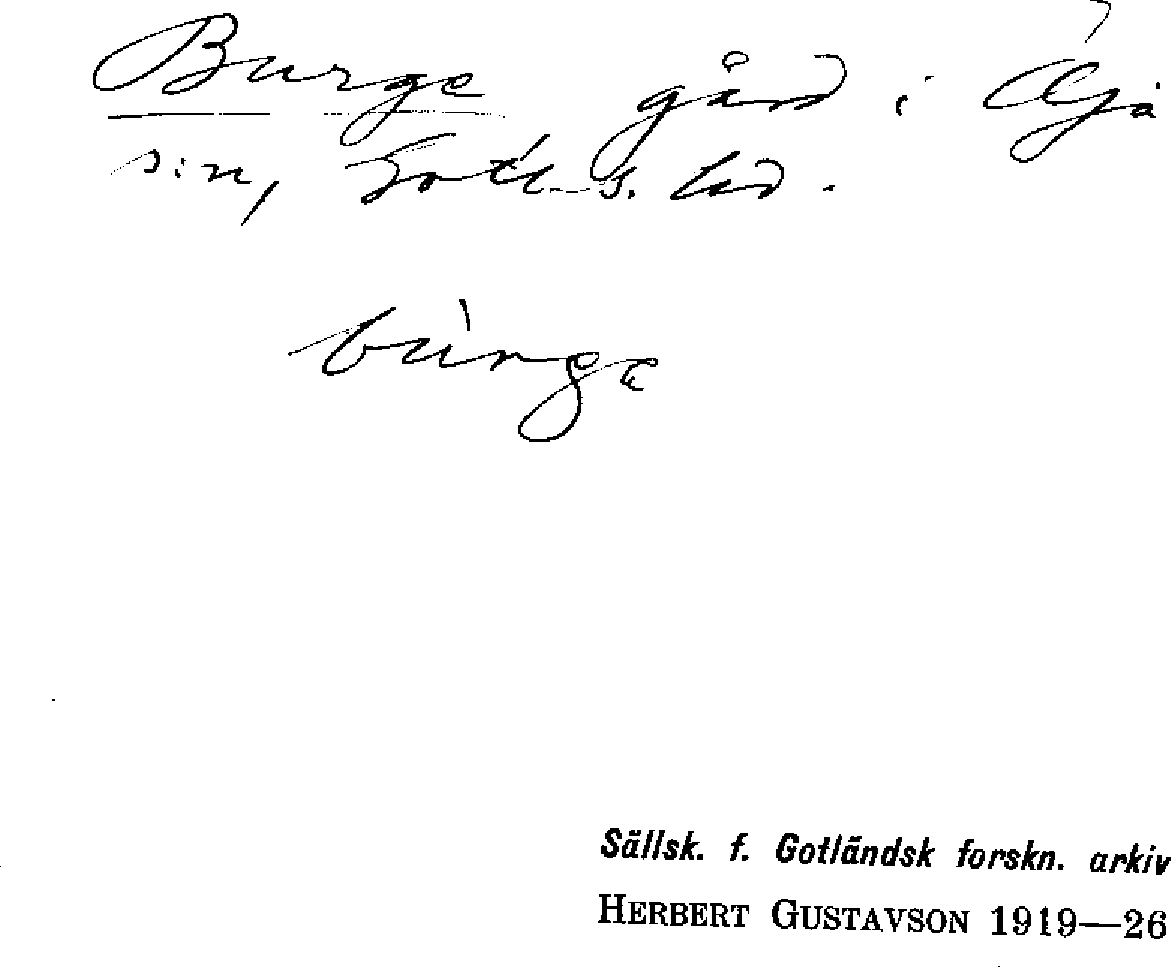 Burge gård i Öja
s:n, Gotl. s. hd.
bùrge
Sällsk. f. Gotländsk forskn. arkiv
HERBERT GUSTAVSON 1919—26